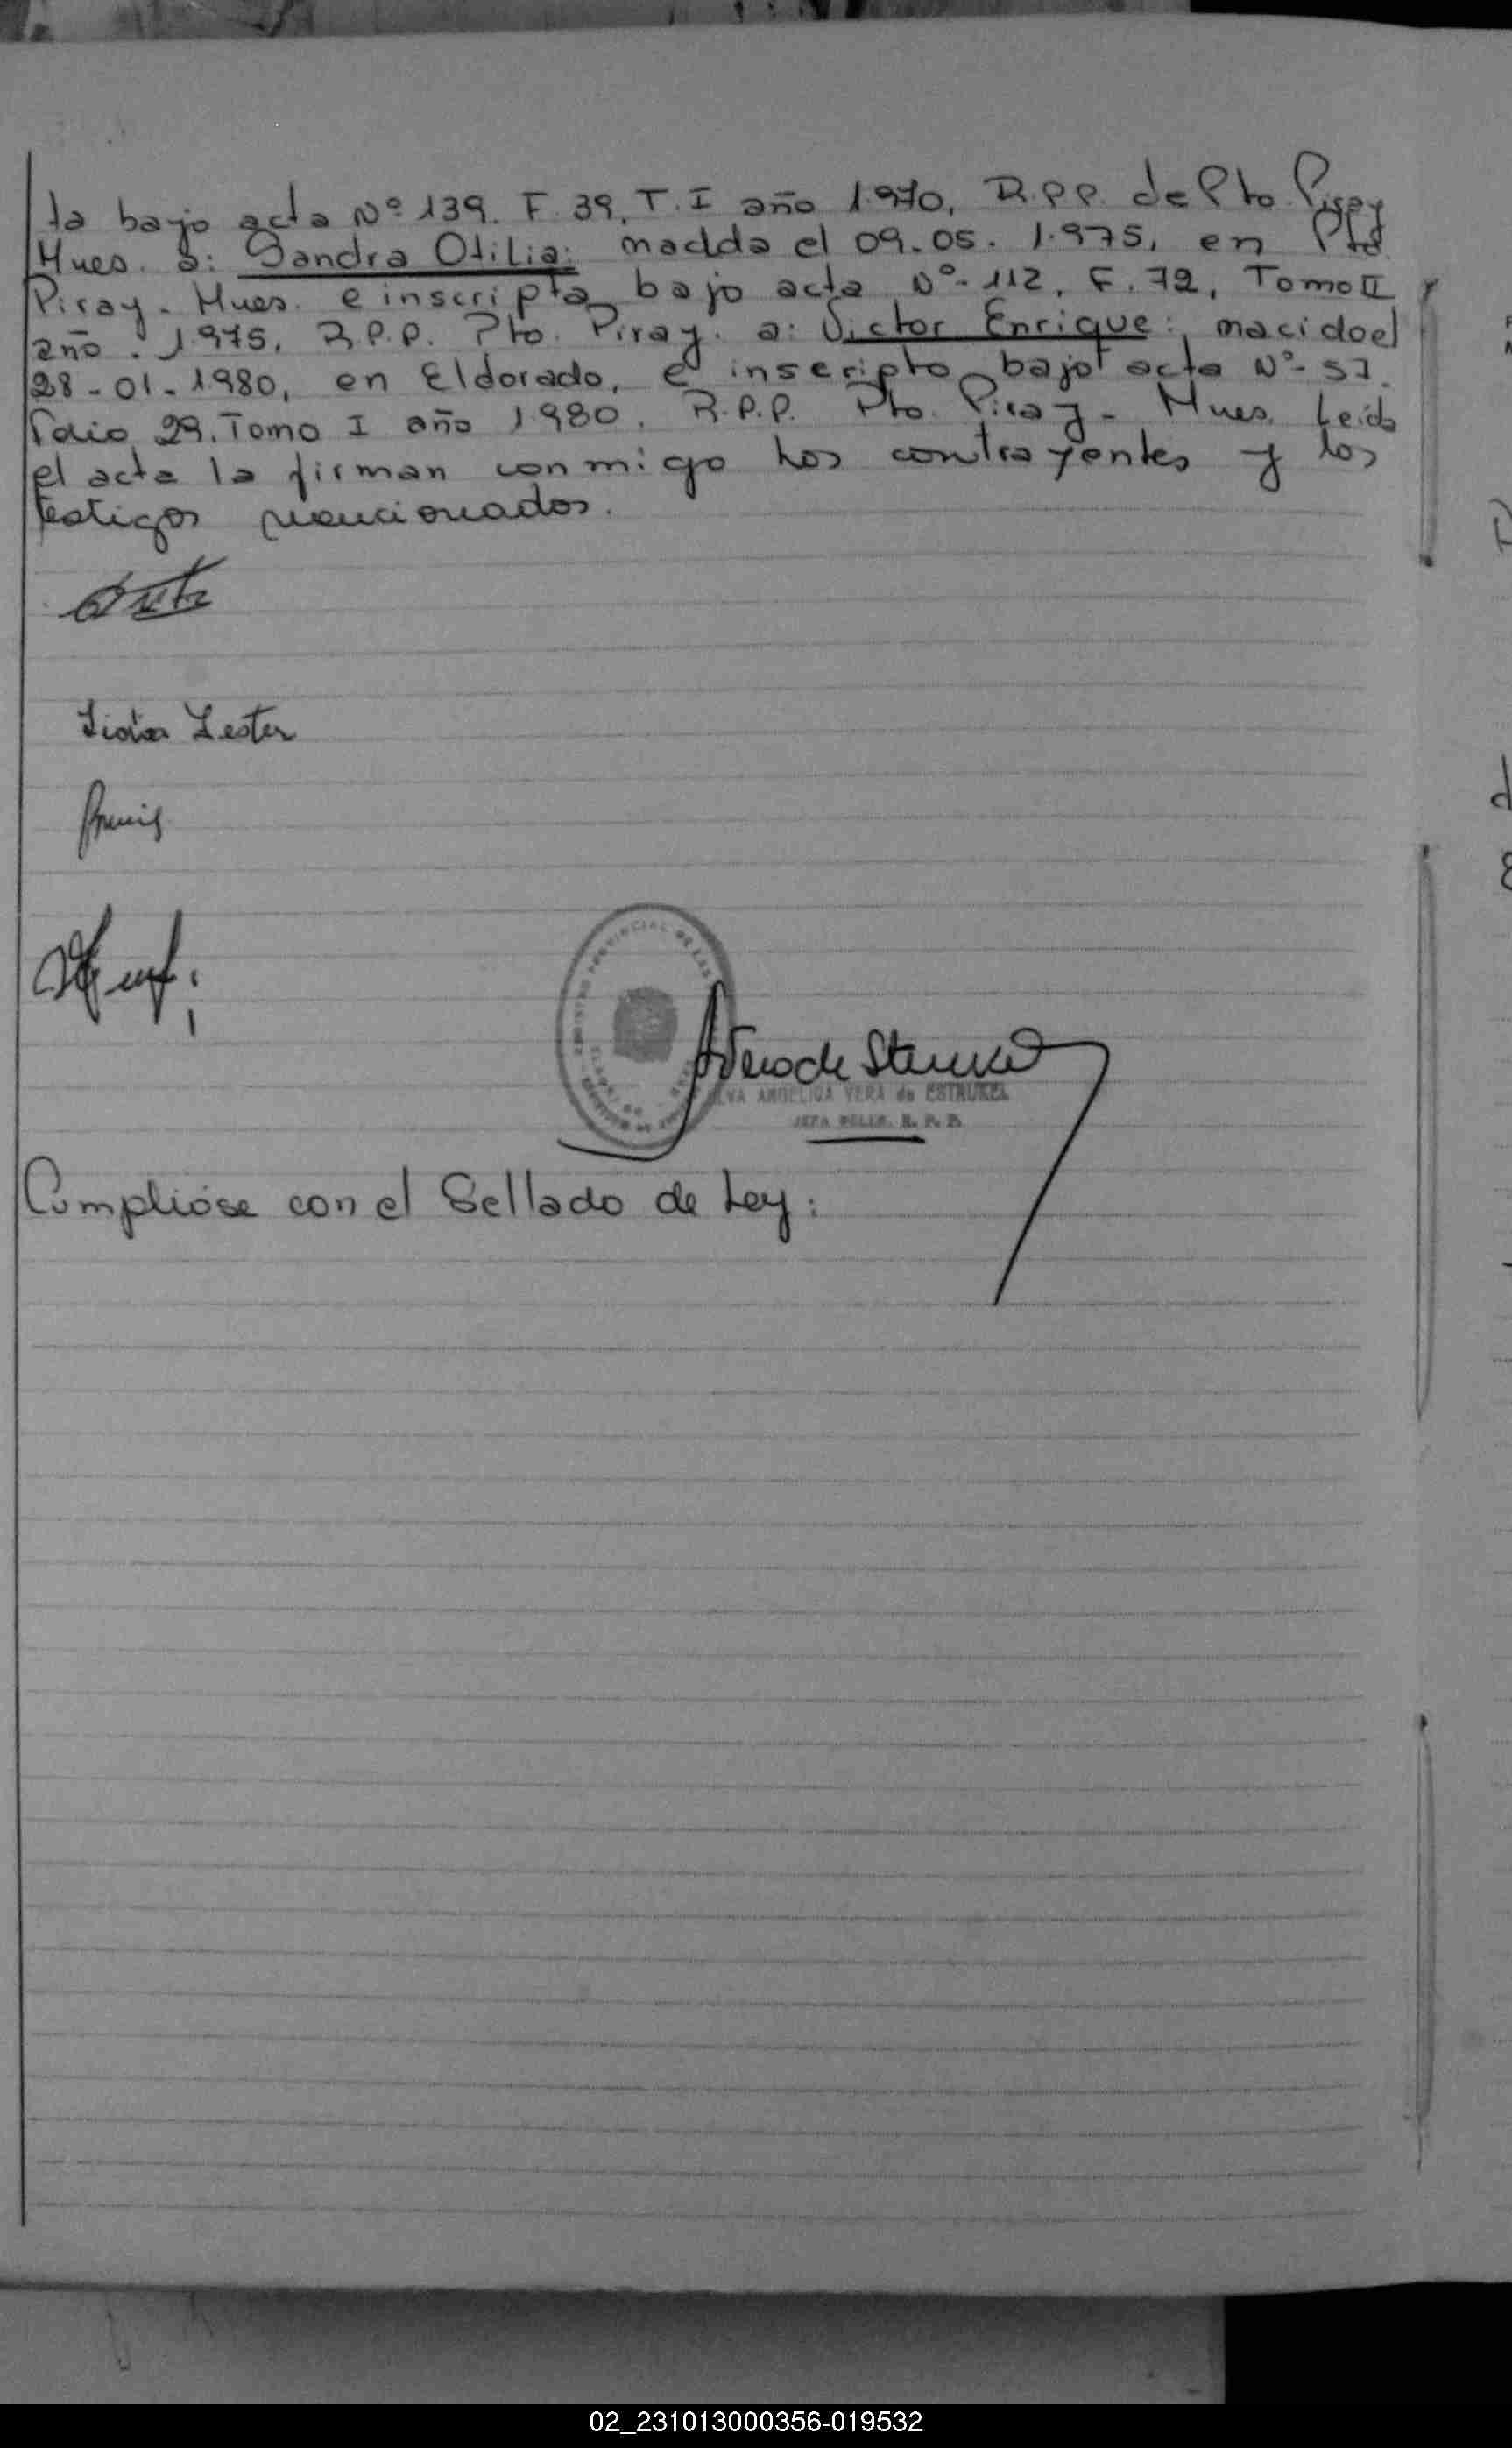 ta bajo acta Nº 139. F. 39, T. I año 1.970, R.P.P. de Pto. Piray
Mnes. a: Sandra Otilia: nacida el 09-05-1.975, en Pto.
Piray - Mnes. e inscripta bajo acta Nº-112, F. 72, Tomo II
año. 1.975, R.P.P. Pto. Piray. a: Victor Enrique: nacido el
28-01-1.980, en Eldorado, e inscripto bajo acta Nº-57.
Folio 29. Tomo I año 1.980. R.P.P. Pto. Piray - Mnes. Leida
el acta la firman conmigo los contrayentes y los
testigos mencionados.
Lidia Lester
REGISTRO PROVINCIAL DE LAS
Vera de Struxel
ELVA ANGELICA VERA de ESTRUKEL
R. P. P.
Cumplióse con el Sellado de Ley:
02_231013000356-019532